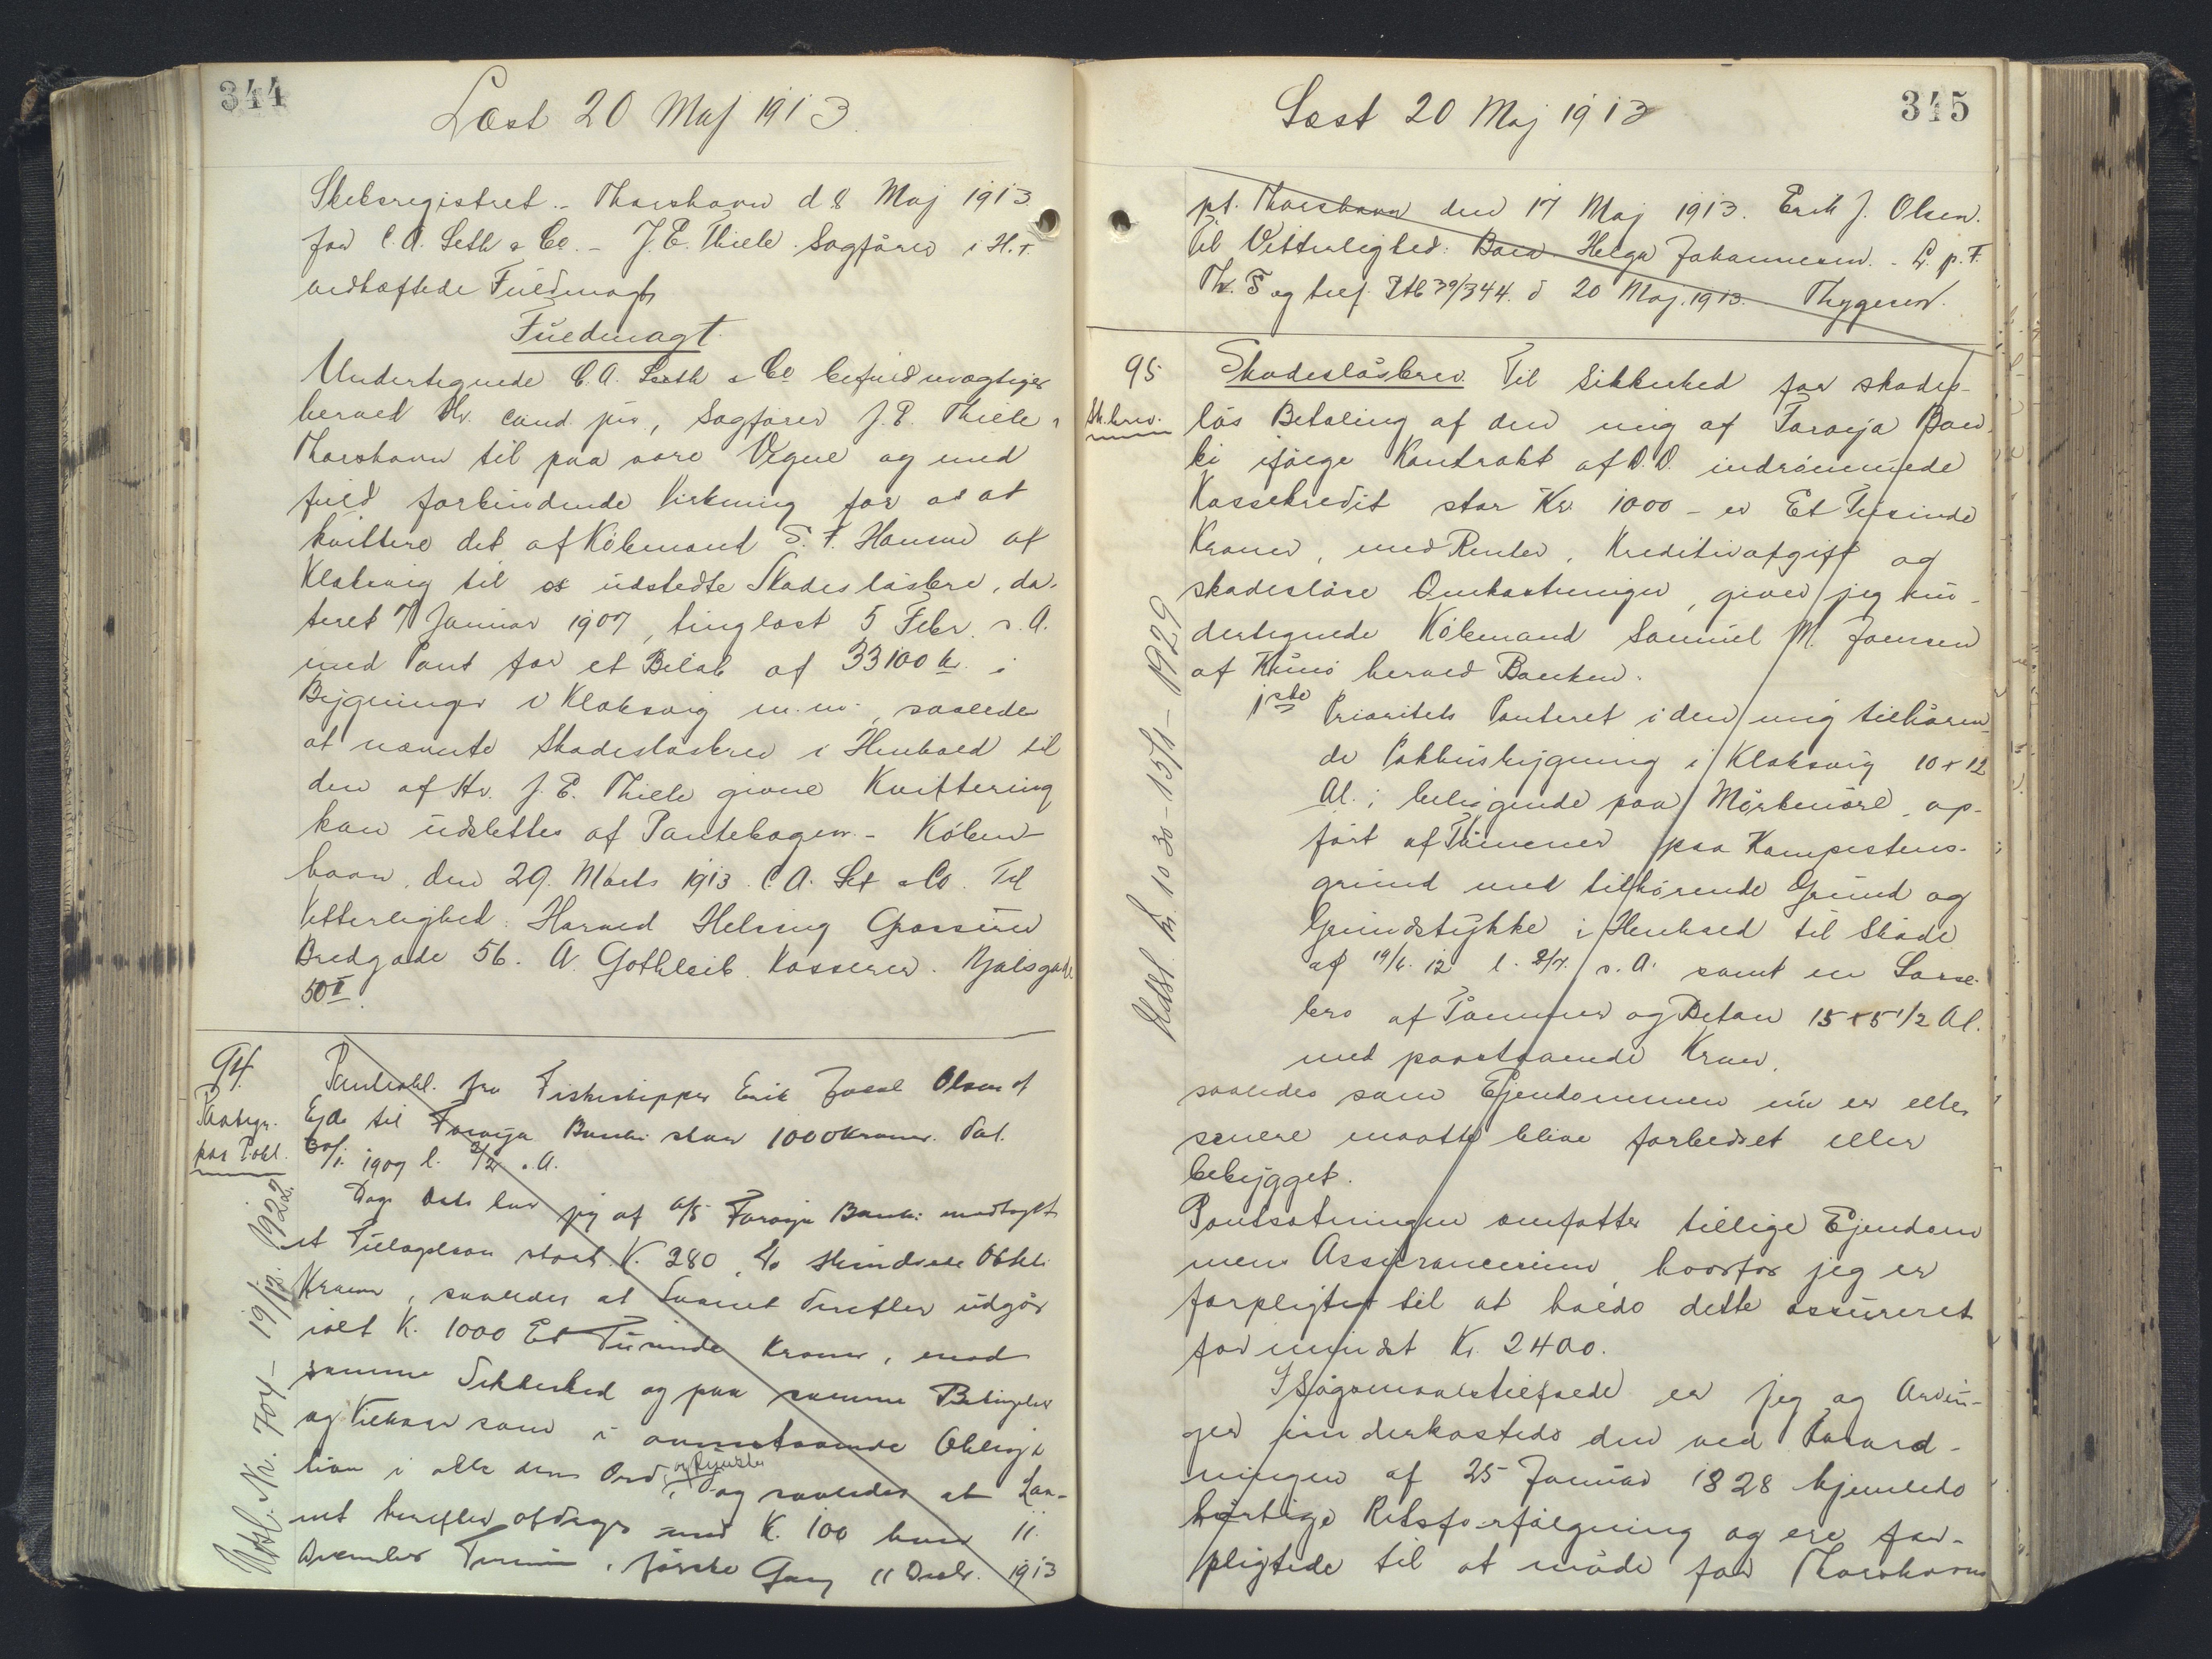 344
Læst 20 Maj 1913.
Skibsregistret. - Thorshavn d 8 Maj 1913
for C. A. Seth & Co. - J. E. Thiele. Sagfører i H. t.
vedhæftede Fuldmagt
Fuldmagt.
Undertegnede C. A. Seth & Co befuldmægtiger
herved Hr. cand. jur., Sagfører J. E. Thiele i
Thorshavn til paa vore Vegne og med
fuld forbindende Virkning for os at
kvittere det af Købmand S. F. Hansen af
Klaksvig til os udstedte Skadesløsbrev, da-
teret 7 Januar 1907, tinglæst 5 Febr. s. A.
med Pant for et Beløb af 33100 Kr. i
Bygninger i Klaksvig m. m., saaledes
at nævnte Skadesløsbrev i Henhold til
den af Hr. J. E. Thiele givne Kvittering
kan udslettes af Pantebogen. - Køben-
havn, den 29. Marts 1913. C. A. Set & Co. Til
Vitterlighed: Harald Helsing Grosserer
Bredgade 56. A. Gothleib. Kasserer. Njalsgade
50 I.
94.
Paategn.
paa Pobl.
Pantobl. fra Fiskeskipper Erik Joael Olsen af
Ejde til Føroya Banki stor 1000 Kroner. Dat.
30/1. 1907 l. 2/2 s. A.
Dags Dato har jeg af A/S Føroya Banki modtaget
et Tillægslaan stort K. 280, To Hundrede Otteti
Kroner, saaledes at Laanet derefter udgør
ialt K. 1000 Et Tusinde Kroner, mod
samme Sikkerhed og paa samme Betingelser
og Vilkaar som i ovenstaaende Obliga-
tion i alle dens Ord og Punkter, og saaledes at Laa-
net herefter afdrages med K. 100 hver 11.
December Termin, første Gang 11 Decbr. 1913
Udsl. Nr. 704 - 19/12. 1922.
345
Læst 20 Maj 1913
pt. Thorshavn den 17 Maj 1913. Erik J. Olsen.
Til Vitterlighed: Helga Johannesen. - L. p. F.
Th. S og tilf. Ptb 39/344. d 20 Maj. 1913. Thygesen.
95
Sk.brev.
Skadesløsbrev. Til Sikkerhed for skades-
løs Betaling af den mig af Føroya Ban-
ki ifølge Kontrakt af D. D. indrømmede
Kassekredit stor Kr 1000 - er Et Tusinde
Kroner, med Renter, Kreditivafgift og
skadesløse Omkostninger, giver jeg un-
dertegnede Købmand Samuel M. Joensen
af Kunø herved Banken.
1ste Prioritets Panteret i den mig tilhøren-
de Pakhusbygning i Klaksvig 10 x 12
Al.; beliggende paa Mørkenøre, op-
ført af Tømmer paa Kampestens-
grund med tilhørende Grund og
Grundstykke i Henhold til Skøde
af 19/6. 12 l. 2/7. s. A. samt en Losse-
bro af Tømmer og Beton 15 x 5 1/2 Al.
med paastaaende Kran.
saaledes som Ejendommen nu er eller
senere maatte blive forbedret eller
bebygget.
Pantsætningen omfatter tillige Ejendom
mens Assurancesum, hvorfor jeg er
forpligtet til at holde dette assureret
for mindst Kr. 2400.
I Søgsmaalstilfælde er jeg og Arvin-
ger underkastede den ved Forord-
ningen af 25 Januar 1828 hjemlede
hurtige Retsforfølgning og ere for-
pligtede til at møde for Thorshavns
Udsl. Nr. 1030 - 15/1 - 1929